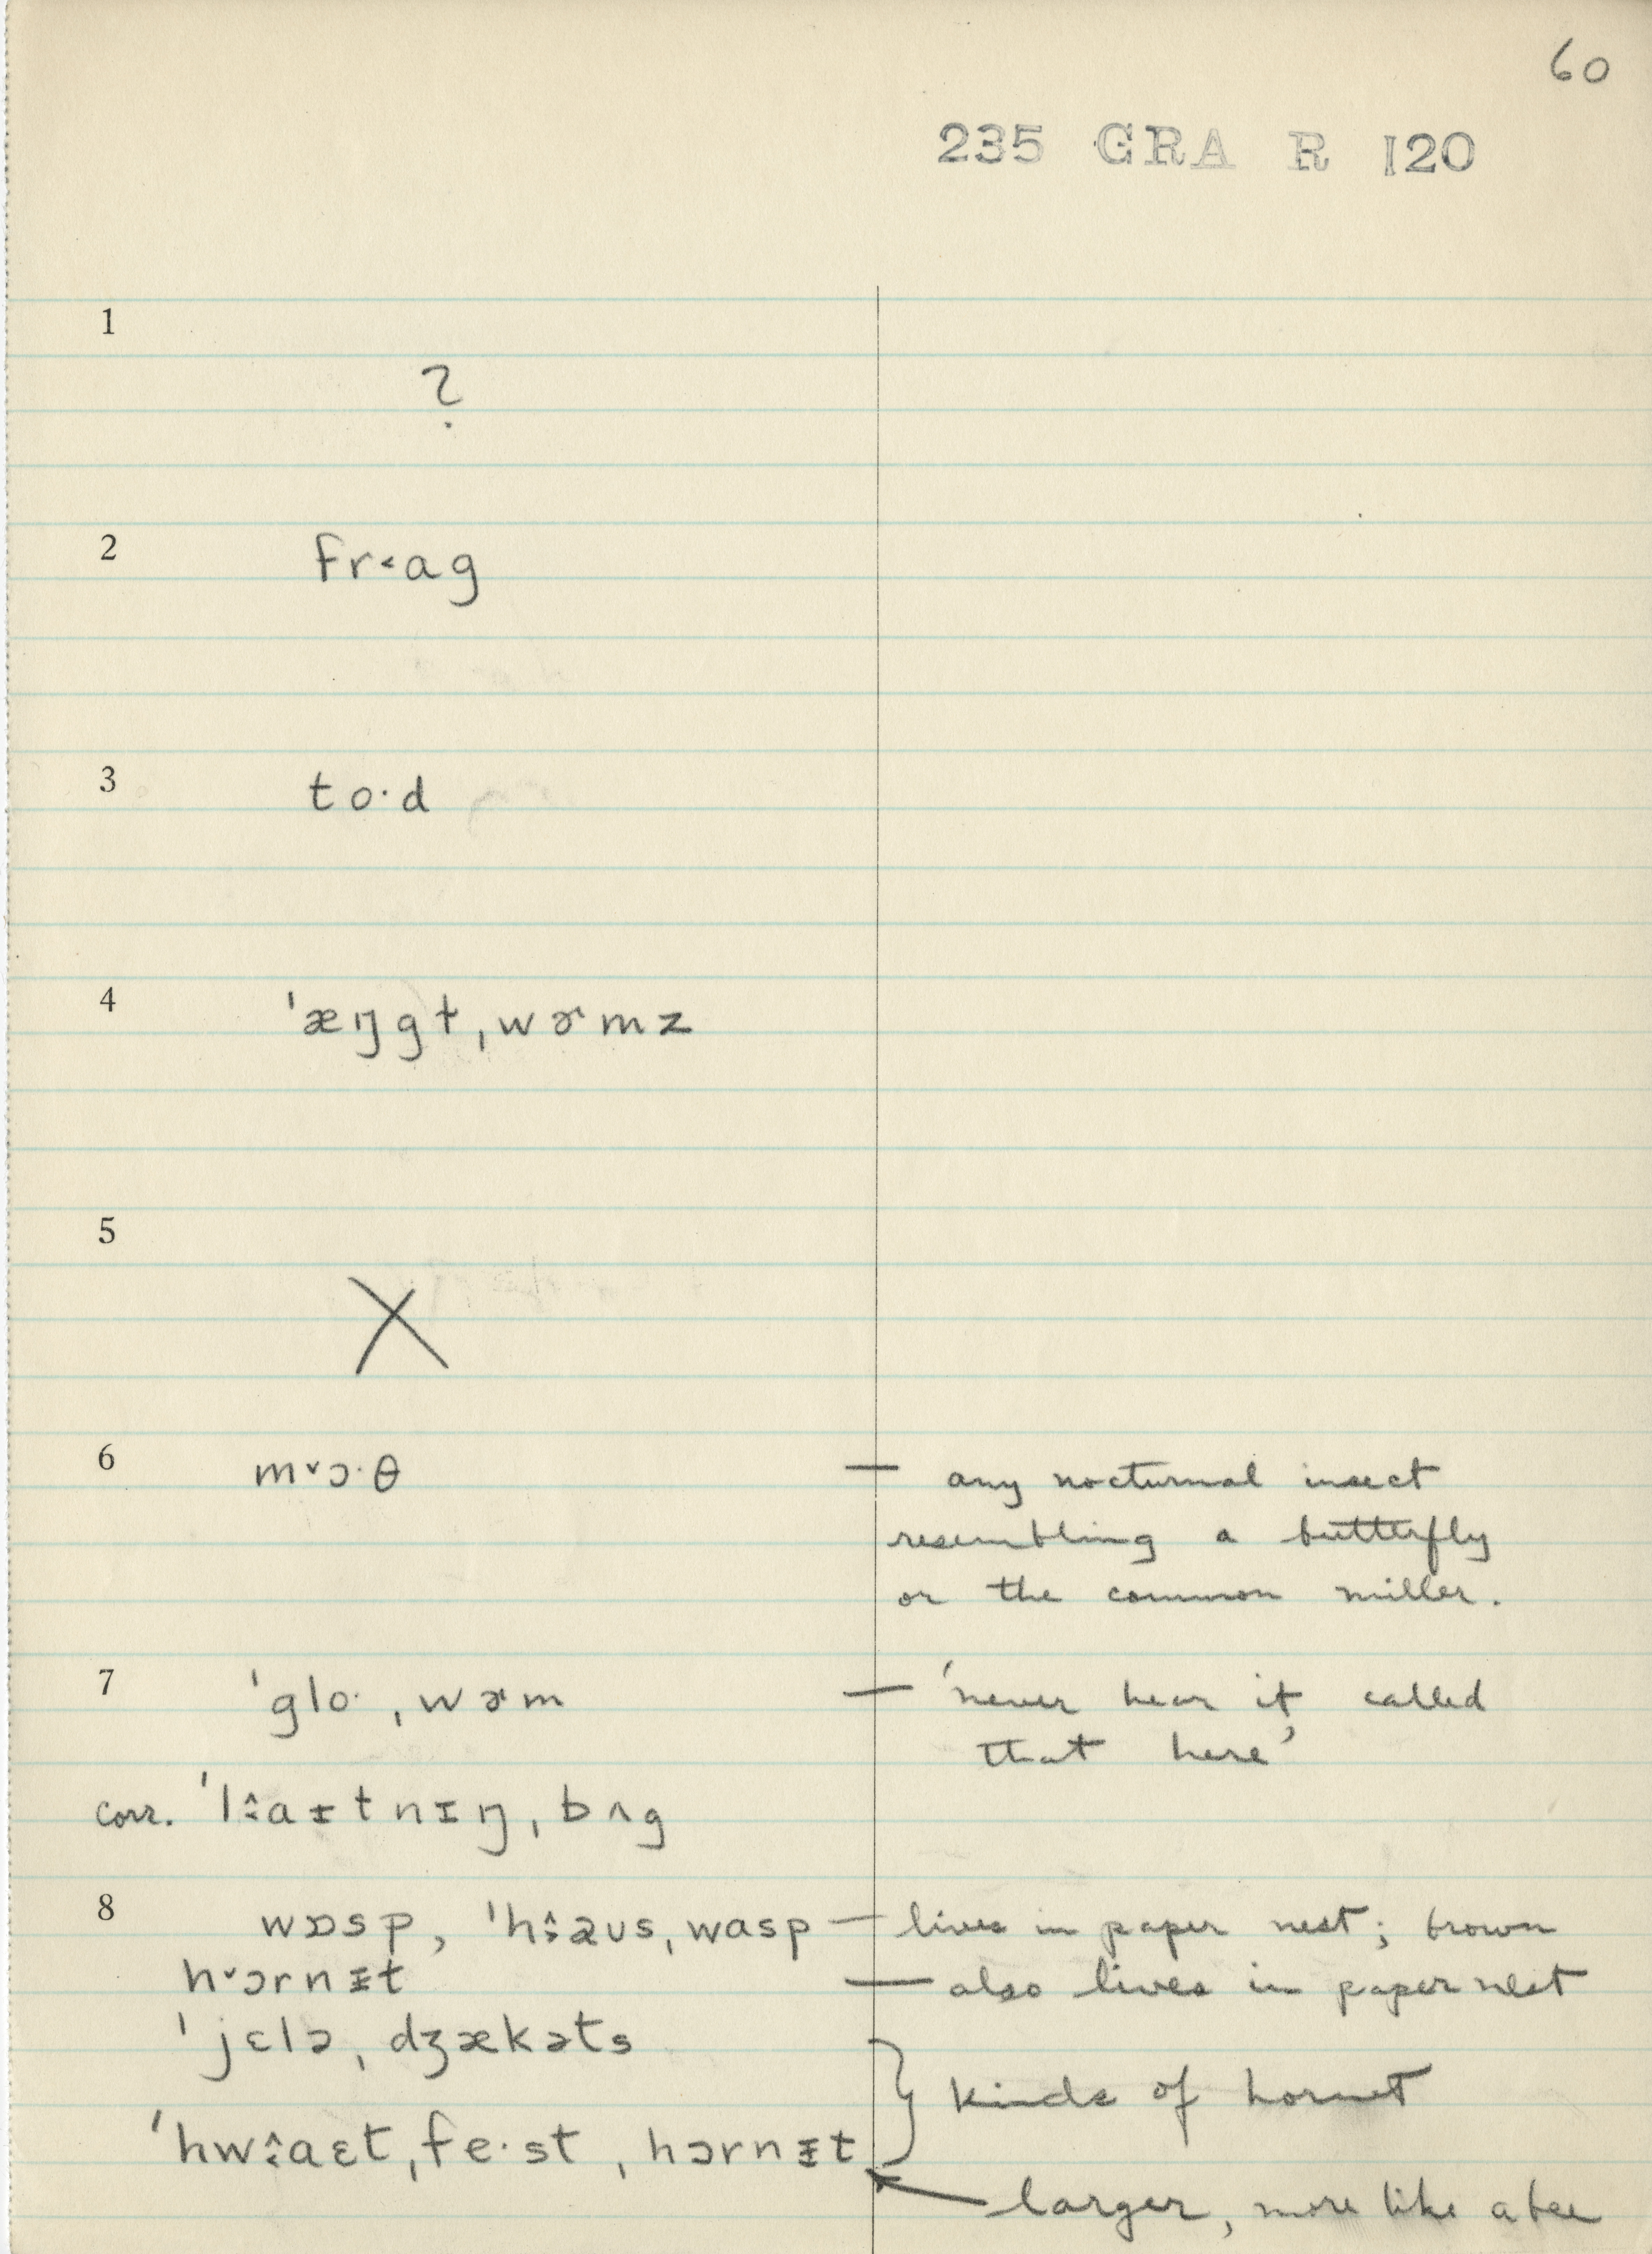 60
235 GRA R 120
1
?
2 fr˂ag
3 to·d
4 ˈæŋgɫˌwɚmz
5
X
6 m˅ɔ·θ — any nocturnal insect
resembling a butterfly
or the common miller.
7 ˈglo·ˌwɚm — 'never hear it called
that here'
corr. ˈlː̂aɪtnɪŋˌbʌg
8 wɒsp, ˈhː̂aʊsˌwasp — lives in paper nest; brown
h˅ɔrnɪt — also lives in paper nest
ˈjɛləˌdʒækəts
} kinds of hornet
ˈhwː̂aɛtˌfe·stˌhɔrnɪt
larger, more like a bee